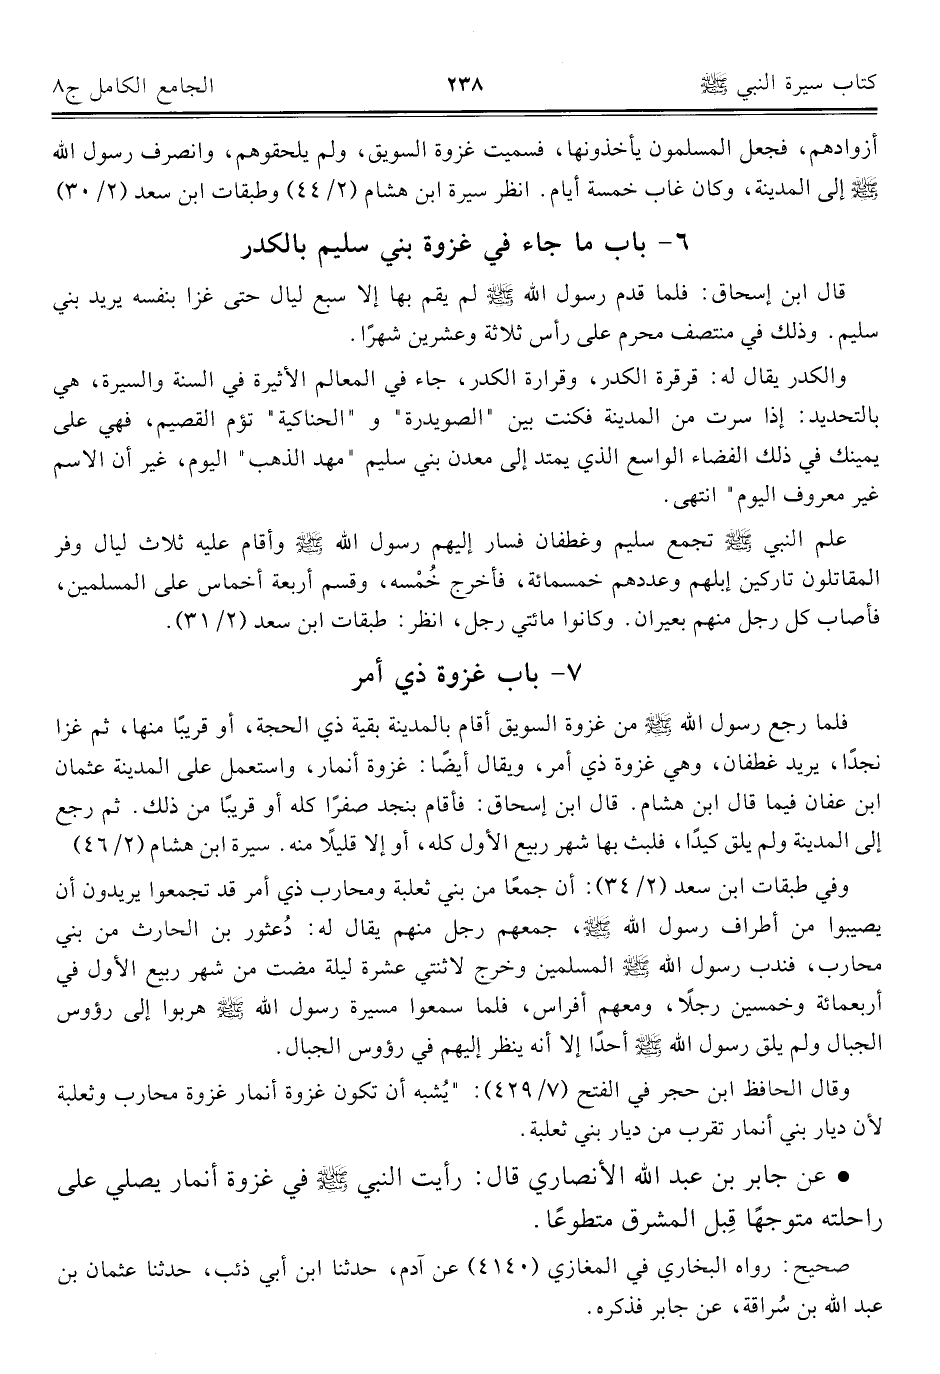 كتاب سيرة النبي ﷺ ٢٣٨ الجامع الكامل ج٨
أزوادهم، فجعل المسلمون يأخذونها، فسميت غزوة السويق، ولم يلحقوهم، وانصرف رسول الله
ﷺ إلى المدينة، وكان غاب خمسة أيام. انظر سيرة ابن هشام (٢/ ٤٤) وطبقات ابن سعد (٢/ ٣٠)
٦- باب ما جاء في غزوة بني سليم بالكدر
قال ابن إسحاق: فلما قدم رسول الله ﷺ لم يقم بها إلا سبع ليال حتى غزا بنفسه يريد بني
سليم. وذلك في منتصف محرم على رأس ثلاثة وعشرين شهرًا.
والكدر يقال له: قرقرة الكدر، وقرارة الكدر، جاء في المعالم الأثيرة في السنة والسيرة، هي
بالتحديد: إذا سرت من المدينة فكنت بين "الصويدرة" و "الحناكية" تؤم القصيم، فهي على
يمينك في ذلك الفضاء الواسع الذي يمتد إلى معدن بني سليم "مهد الذهب" اليوم، غير أن الاسم
غير معروف اليوم" انتهى.
علم النبي ﷺ تجمع سليم وغطفان فسار إليهم رسول الله ﷺ وأقام عليه ثلاث ليال وفر
المقاتلون تاركين إبلهم وعددهم خمسمائة، فأخرج خُمْسه، وقسم أربعة أخماس على المسلمين،
فأصاب كل رجل منهم بعيران. وكانوا مائتي رجل، انظر: طبقات ابن سعد (٢/ ٣١).
٧- باب غزوة ذي أمر
فلما رجع رسول الله ﷺ من غزوة السويق أقام بالمدينة بقية ذي الحجة، أو قريبًا منها، ثم غزا
نجدًا، يريد غطفان، وهي غزوة ذي أمر، ويقال أيضًا: غزوة أنمار، واستعمل على المدينة عثمان
ابن عفان فيما قال ابن هشام. قال ابن إسحاق: فأقام بنجد صفرًا كله أو قريبًا من ذلك. ثم رجع
إلى المدينة ولم يلق كيدًا، فلبث بها شهر ربيع الأول كله، أو إلا قليلًا منه. سيرة ابن هشام (٢/ ٤٦)
وفي طبقات ابن سعد (٢/ ٣٤): أن جمعًا من بني ثعلبة ومحارب ذي أمر قد تجمعوا يريدون أن
يصيبوا من أطراف رسول الله ﷺ، جمعهم رجل منهم يقال له: دُعثور بن الحارث من بني
محارب، فندب رسول الله ﷺ المسلمين وخرج لاثنتي عشرة ليلة مضت من شهر ربيع الأول في
أربعمائة وخمسين رجلًا، ومعهم أفراس، فلما سمعوا مسيرة رسول الله ﷺ هربوا إلى رؤوس
الجبال ولم يلق رسول الله ﷺ أحدًا إلا أنه ينظر إليهم في رؤوس الجبال.
وقال الحافظ ابن حجر في الفتح (٧/ ٤٢٩): "يُشبه أن تكون غزوة أنمار غزوة محارب وثعلبة
لأن ديار بني أنمار تقرب من ديار بني ثعلبة.
● عن جابر بن عبد الله الأنصاري قال: رأيت النبي ﷺ في غزوة أنمار يصلي على
راحلته متوجهًا قِبل المشرق متطوعًا.
صحيح: رواه البخاري في المغازي (٤١٤٠) عن آدم، حدثنا ابن أبي ذئب، حدثنا عثمان بن
عبد الله بن سُراقة، عن جابر فذكره.